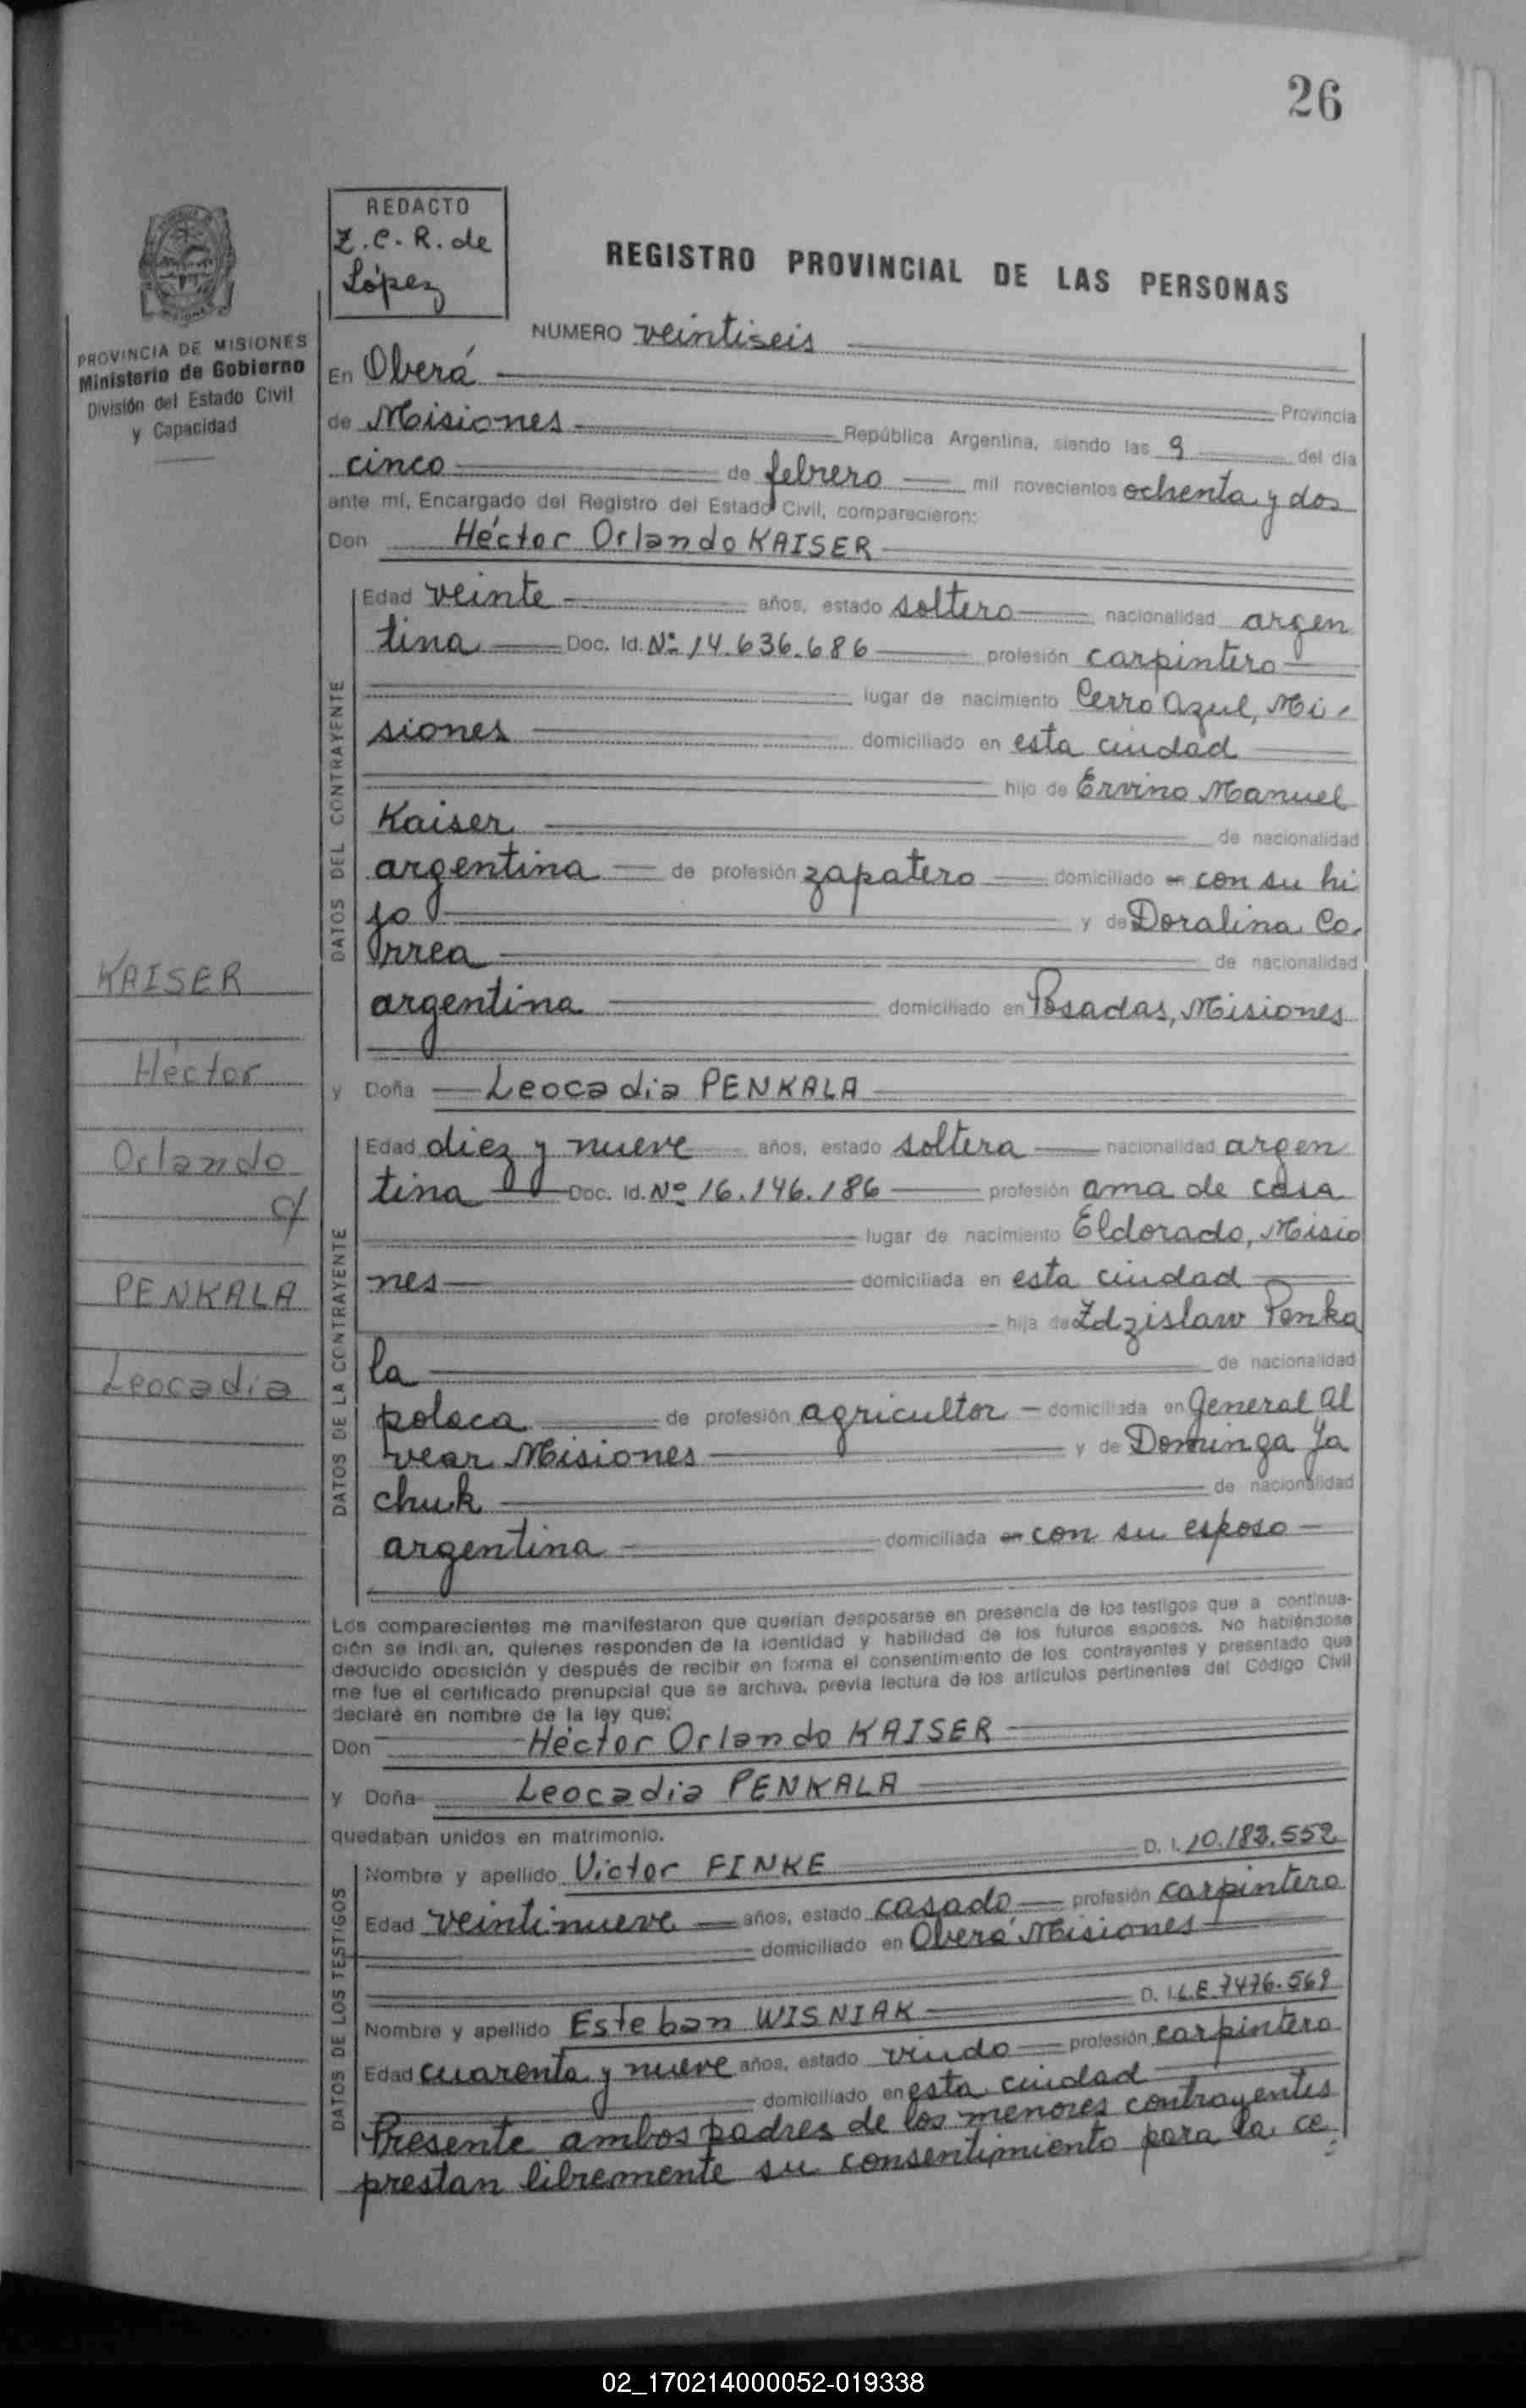 26
REDACTO
Z.C.R. de
López
REGISTRO PROVINCIAL DE LAS PERSONAS
PROVINCIA DE MISIONES
Ministerio de Gobierno
División del Estado Civil
y Capacidad
NUMERO veintiseis
En Oberá Provincia
de Misiones República Argentina, siendo las 9 del día
cinco de febrero mil novecientos ochenta y dos
ante mí, Encargado del Registro del Estado Civil, comparecieron:
Don Héctor Orlando KAISER
DATOS DEL CONTRAYENTE
Edad veinte años, estado soltero nacionalidad argen
tina Doc. Id. Nº 14.636.686 profesión carpintero
lugar de nacimiento Cerro Azul, Mi-
siones domiciliado en esta ciudad
hijo de Ervino Manuel
Kaiser de nacionalidad
argentina de profesión zapatero domiciliado en con su hi
jo y de Doralina Co.
rrea de nacionalidad
argentina domiciliado en Posadas, Misiones
y Doña Leocadia PENKALA
DATOS DE LA CONTRAYENTE
Edad diez y nueve años, estado soltera nacionalidad argen
tina Doc. Id. Nº 16.146.186 profesión ama de casa
lugar de nacimiento Eldorado, Misio
nes domiciliada en esta ciudad
hija de Zdzislaw Penka
la de nacionalidad
polaca de profesión agricultor domiciliada en General Al
vear Misiones y de Dominga Ja
chuk de nacionalidad
argentina domiciliada en con su esposo
KAISER
Héctor
Orlando
c/
PENKALA
Leocadia
Los comparecientes me manifestaron que querían desposarse en presencia de los testigos que a continua-
ción se indican, quienes responden de la identidad y habilidad de los futuros esposos. No habiéndose
deducido oposición y después de recibir en forma el consentimiento de los contrayentes y presentado que
me fue el certificado prenupcial que se archiva, previa lectura de los artículos pertinentes del Código Civil
declaré en nombre de la ley que:
Don Héctor Orlando KAISER
y Doña Leocadia PENKALA
quedaban unidos en matrimonio.
DATOS DE LOS TESTIGOS
Nombre y apellido Victor FINKE D. I. 10.183.552
Edad veintinueve años, estado casado profesión carpintero
domiciliado en Oberá Misiones
Nombre y apellido Esteban WISNIAK D. I. L.E. 7476.569
Edad cuarenta y nueve años, estado viudo profesión carpintero
domiciliado en esta ciudad
Presente ambos padres de los menores contrayentes
prestan libremente su consentimiento para la ce
02_170214000052-019338